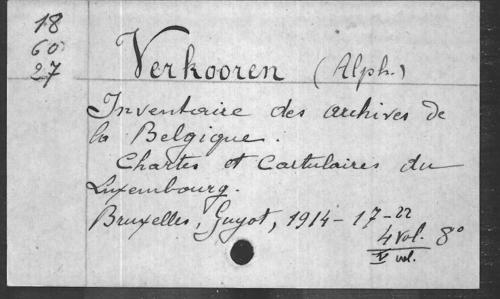 18
60
27
Verkooren (Alph.)
Inventaire des archives de
la Belgique.
Chartes et Cartulaires du
Luxembourg.
Bruxelles, Guyot, 1914-17-22
4 vol. 8°
V vol.